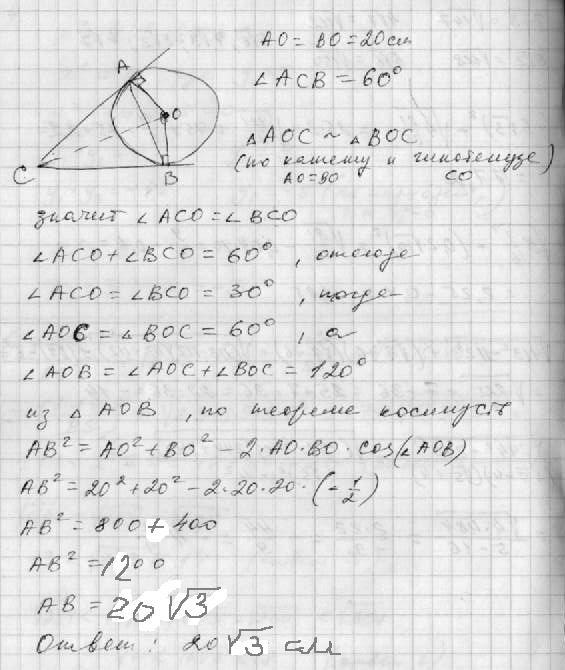 AO = BO = 20 см
∠ACB = 60°
A
O
C
B
△AOC ~ △BOC
(по катету и гипотенузе)
AO=BO CO
значит ∠ACO = ∠BCO
∠ACO + ∠BCO = 60°, отсюда
∠ACO = ∠BCO = 30°, тогда
∠AOC = ∠BOC = 60°, а
∠AOB = ∠AOC + ∠BOC = 120°
из △AOB, по теореме косинусв
AB² = AO² + BO² - 2·AO·BO·cos(∠AOB)
AB² = 20² + 20² - 2·20·20·(-1/2)
AB² = 800 + 400
AB² = 1200
AB = 20√3
Ответ: 20√3 см